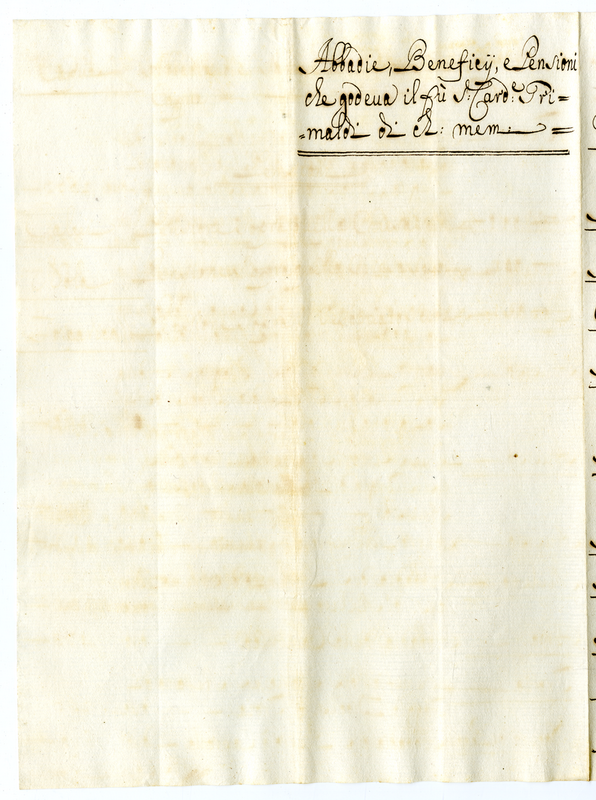 Abbadie, Beneficÿ, e Pensioni
che godeva il fù S.r Card.e Gri=
=maldi di ch: mem: =